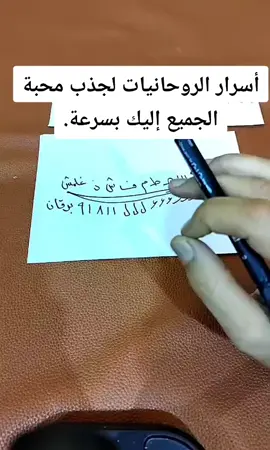 أسرار الروحانيات لجذب محبة
الجميع إليك بسرعة.
ط م ف ش ن غلمش
ل ل ل ١ ١ ٨ ١ ٩ برقان